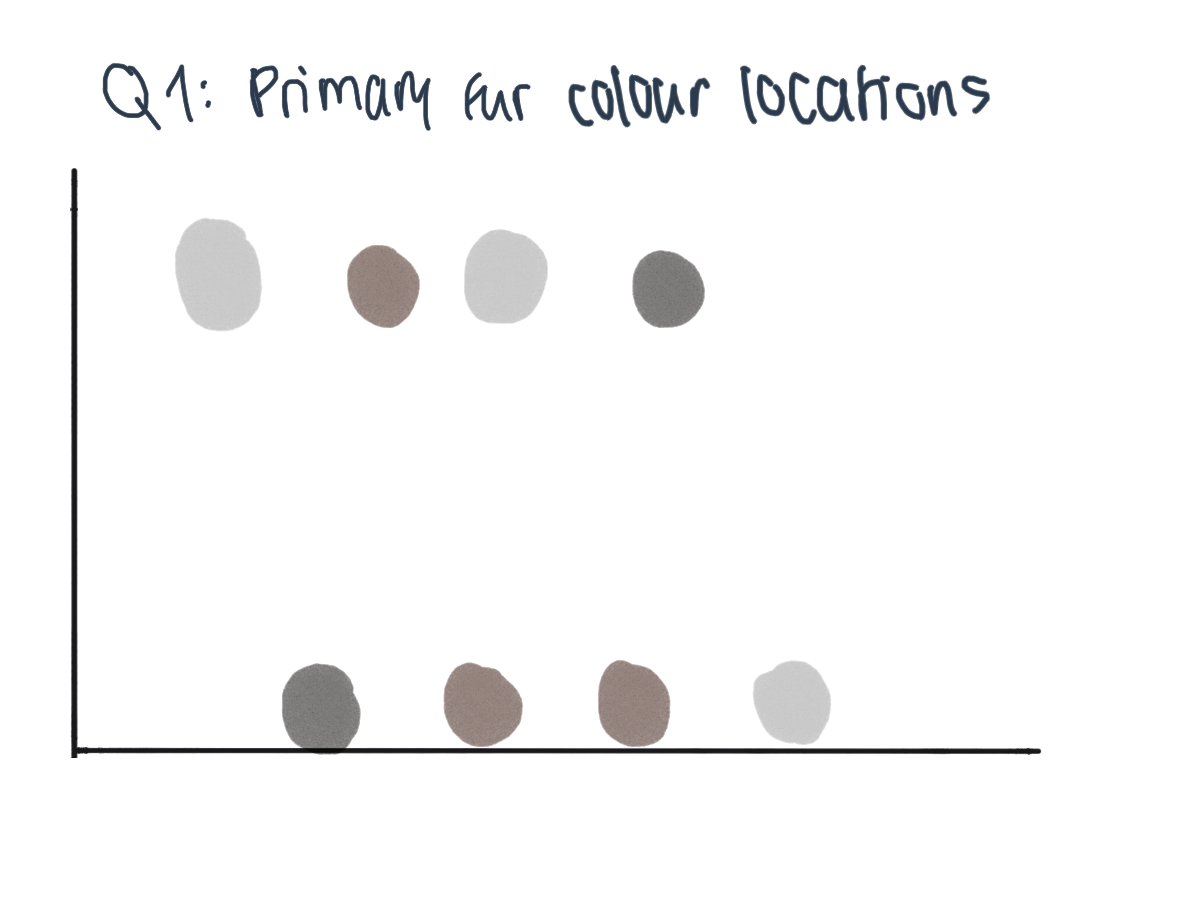 Q1: Primary Fur colour locations